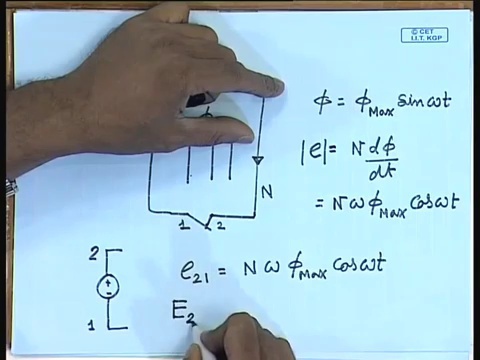 © CET
I.I.T. KGP
φ = φ_Max sin ωt
|e| = N dφ/dt
= N ω φ_Max cos ωt
N
1 2
2
+
-
1
e_21 = N ω φ_Max cos ωt
E_2